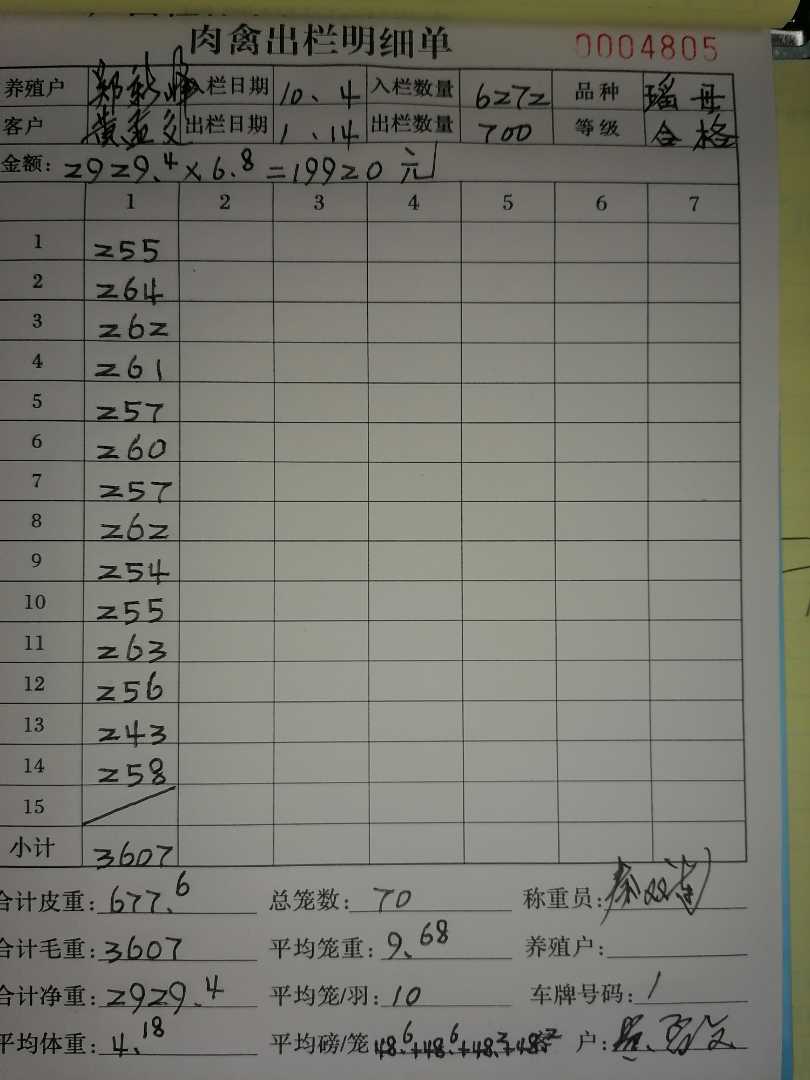 肉禽出栏明细单 0004805
养殖户 入栏日期 10.4 入栏数量 6272 品种 瑶母
客户 出栏日期 1.14 出栏数量 700 等级 合格
金额: 2929.4×6.8=19920元
1 2 3 4 5 6 7
1 255
2 264
3 262
4 261
5 257
6 260
7 257
8 262
9 254
10 255
11 263
12 256
13 243
14 258
15
小计 3607
合计皮重: 677.6 总笼数: 70 称重员:
合计毛重: 3607 平均笼重: 9.68 养殖户:
合计净重: 2929.4 平均笼/羽: 10 车牌号码: 1
平均体重: 4.18 平均磅/笼 48.6+48.6+48.2+48.2 户: